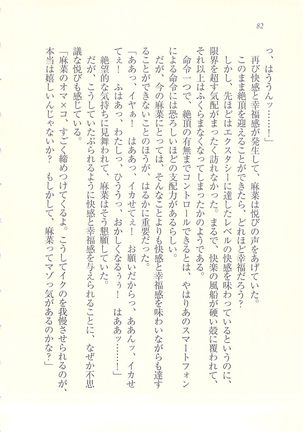 82
っ、はうんッ……！」
再び快感と幸福感が発生して、麻菜は悦びの声をあげていた。
このまま絶頂を迎えることができたら、どれほど幸福だろう？
しかし、先ほどはエクスタシーに達したレベルの快感を味わっているというのに、
限界を超す気配がまったく訪れなかった。まるで、快楽の風船が硬い殻に覆われて、
それ以上はふくらまなくなってしまったかのようである。
命令一つで、絶頂の有無までコントロールできるとは、やはりあのスマートフォン
による命令には恐ろしいほどの支配力があるらしい。
だが、今の麻菜にとっては、そんなことよりも快感と幸福感を味わいながらも達す
ることができないことのほうが、はるかに重要だった。
「ああっ、イヤぁ！　はああっ、イカせてぇ！　お願いだからっ、ああんッ、イカせ
てぇ！　ふはあっ、わたしっ、ひううっ、おかしくなるぅぅ！　はああッ……！」
絶望的な気持ちに見舞われて、麻菜はそう懇願していた。
だが、こうしていたぶられるように快感と幸福感を与えられることに、なぜか不思
議な悦びも感じている。
「麻菜のオマ×コ、すごく締めつけてくるよ。こうしてイクのを我慢させられるのが、
本当は嬉しいんじゃないか？　もしかして、麻菜ってマゾっ気があるのかな？」